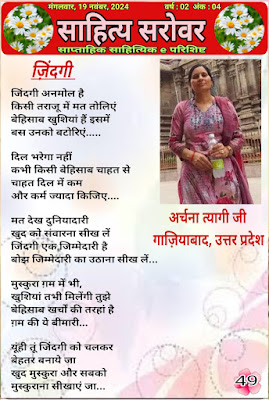 मंगलवार, 19 नवंबर, 2024 वर्ष : 02 अंक : 04
साहित्य सरोवर
साप्ताहिक साहित्यिक e परिशिष्ट
ज़िंदगी
जिंदगी अनमोल है
किसी तराजू में मत तोलिएं
बेहिसाब खुशियां हैं इसमें
बस उनको बटोरिएं.....
दिल भरेगा नहीं
कभी किसी बेहिसाब चाहत से
चाहत दिल में कम
और कर्म ज्यादा किजिए....
मत देख दुनियादारी
खुद को संवारना सीख लें
जिंदगी एक,जिम्मेदारी है
बोझ जिम्मेदारी का उठाना सीख लें...
मुस्कुरा ग़म में भी,
खुशियां तभी मिलेंगी तुझे
बेहिसाब खर्चों की तरहां है
ग़म की ये बीमारी...
यूंही तूं जिंदगी को चलकर
बेहतर बनाये जा
खुद मुस्कुरा और सबको
मुस्कुराना सीखाएं जा...
अर्चना त्यागी जी
गाज़ियाबाद, उत्तर प्रदेश
49